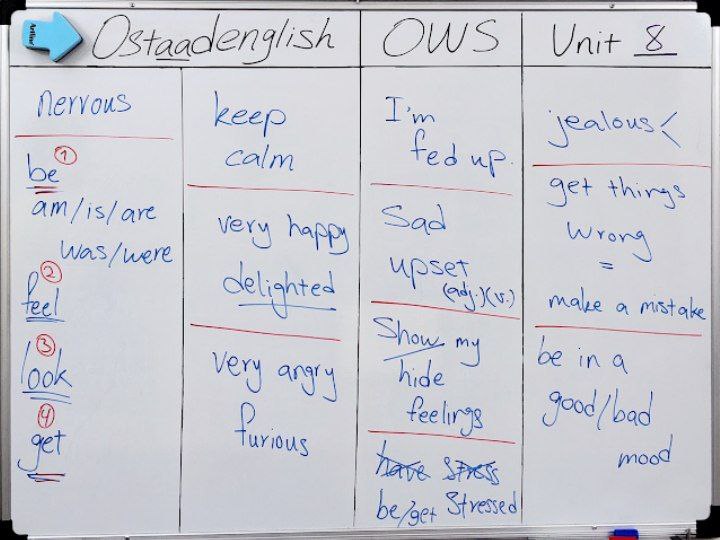 Ostaadenglish
OWS
Unit 8
nervous
be ①
am/is/are
was/were
②
feel
③
look
④
get
keep
calm
very happy
delighted
very angry
furious
I'm
fed up.
Sad
upset
(adj.)(v.)
Show my
hide
feelings
have stress
be/get Stressed
jealous <
get things
wrong
=
make a mistake
be in a
good/bad
mood